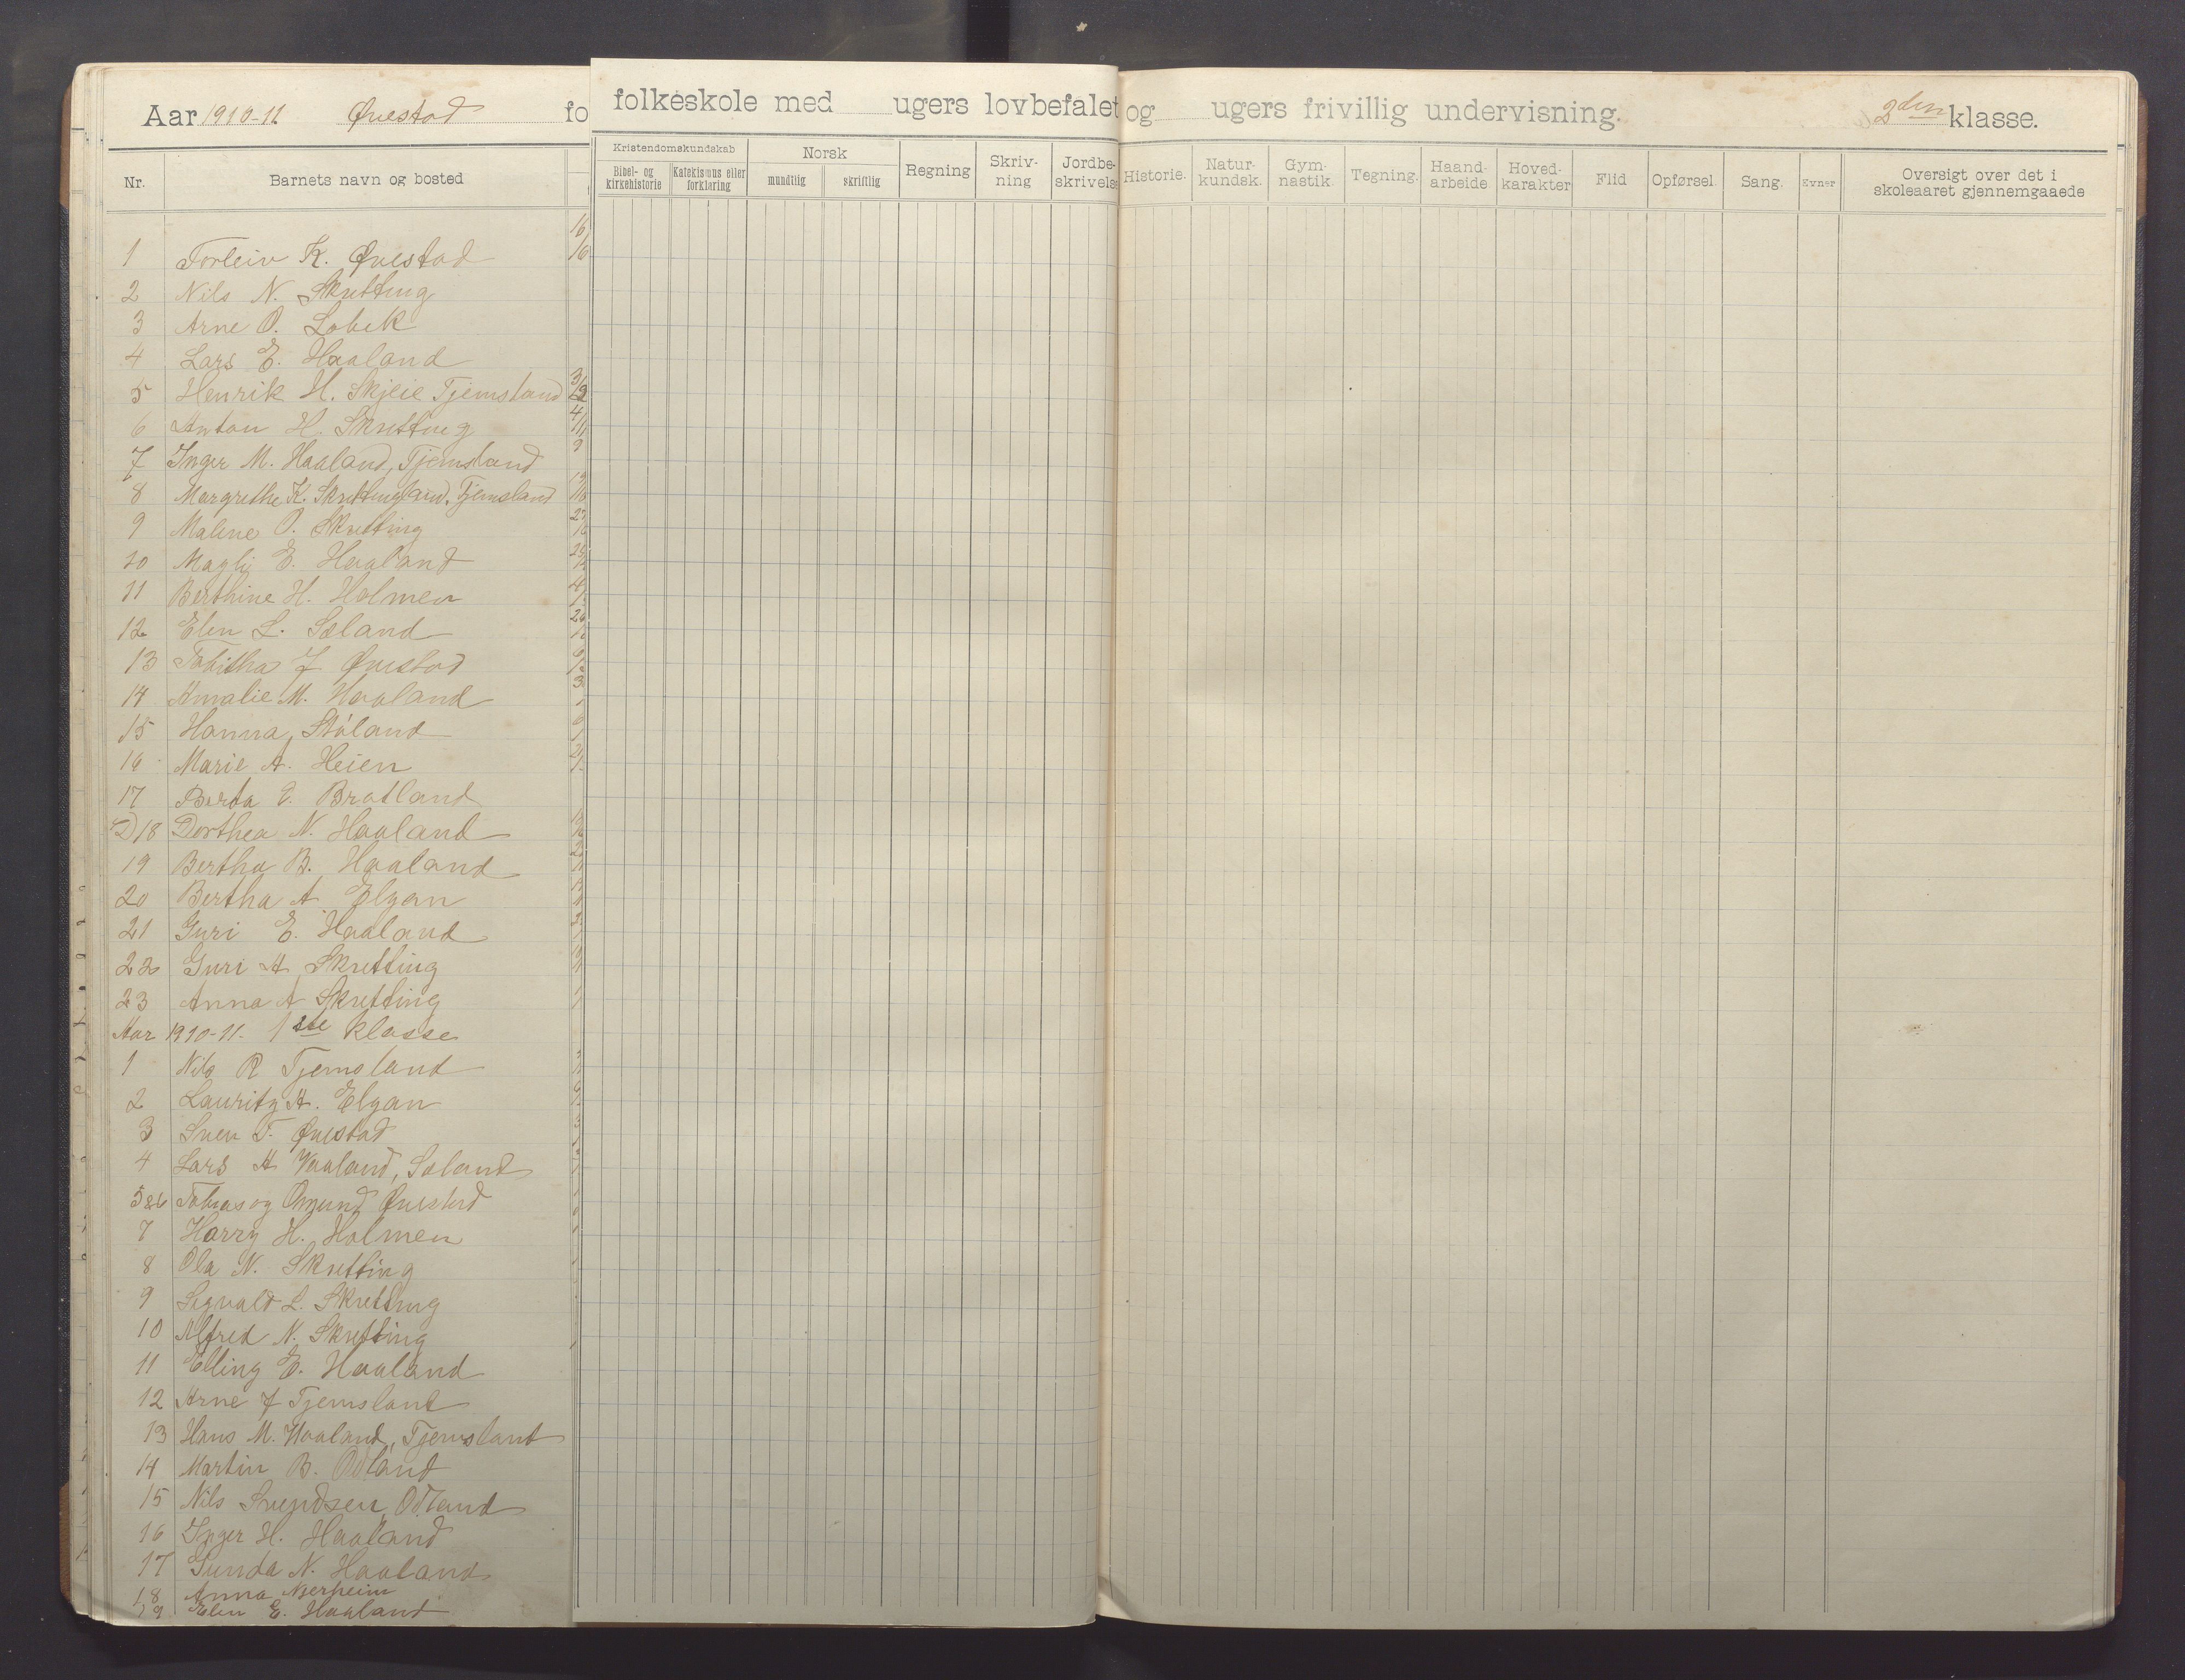 Aar 1910-11 Øvestad fo folkeskole med ugers lovbefalet og ugers frivillig undervisning. 2den klasse.
Nr. Barnets navn og bosted Kristendomskundskab Bibel- og kirkehistorie Katekismus eller forklaring Norsk mundtlig skriftlig Regning Skriv-ning Jordbe-skrivelse Historie. Natur-kundsk. Gym-nastik. Tegning. Haand-arbeide Hoved-karakter Flid Opførsel. Sang. Evner Oversigt over det i skoleaaret gjennemgaaede
1 Torleiv K. Øvestad 16/6
2 Nils N. Skretting
3 Arne O. Lobek
4 Lars E. Haaland
5 Henrik H. Skjeie Tjemsland
6 Anton H. Skretting 4/11
7 Inger M. Haaland, Tjemsland 9
8 Margrethe K. Skrettingland, Tjemsland
9 Malene O. Skretting
10 Magli E. Haaland
11 Berthine H. Holmen
12 Elen L. Søland
13 Tabitha J Øvestad
14 Amalie M. Haaland
15 Hanna, Stöland
16 Marie A. Heien
17 Berta E. Bratland
18 Dorthea N. Haaland
19 Bertha B. Haaland
20 Bertha A. Elgan
21 Guri E. Haaland
22 Guri A. Skretting
23 Anna A Skretting
Aar 1910-11. 1ste klasse
1 Nils R Tjemsland
2 Lauritz A. Elgan
3 Sven T. Øvestad
4 Lars A Vaaland, Søland
5 & 6 Tobias og Omund Øvestad
7 Harry H. Holmen
8 Ola N. Skretting
9 Sigvald L. Skretting
10 Alfred N. Skretting
11 Elling E. Haaland
12 Arne J Tjemsland
13 Hans M. Haaland, Tjemsland
14 Martin B. Ødland
15 Nils Svendsen, Ødland
16 Inger H. Haaland
17 Gunda N. Haaland
18 Anna Njerheim
19 Elen E. Haaland